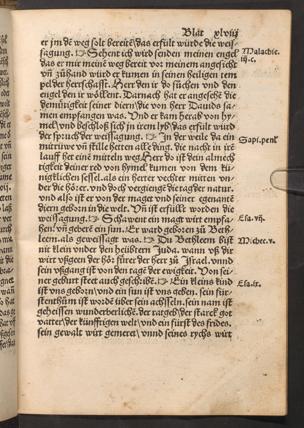 Blat xlviij
er jm dē weg solt bereitē/das erfült würde die weis-
sagung. Sehent ich wird senden meinen engel
das er mir meinē weg bereit vor meinem angesicht
vn̄ zůhand wird er kumen in seinen heiligen tem
pel der herrschafft. Herr den ir do sůchen vnd den
engel den ir wöllent. Darnach hat er angesehē die
demütigkeit seiner diern/die von herr Dauids sa-
men empfangen was. Vnd er kam herab von hy-
mel/vnd beschloß sich in irem lyb/das erfült würd
der spruch der weissagung. In der weile da ein
mitruwe vn̄ stille hetten alle ding. die nacht in irē
lauff het einē mitteln weg. Herr do ist dein almech
tigkeit deiner red von hymel kumen von den kü-
nigklichen sessel. als ein herter vechter mitten vn-
der die
vnd als ist er von der maget vnd seiner
diern worden in die welt. Vn̄ ist erfüllt worden die
weissagung. Schaw ein magt wirt empfa-
hen/vn̄ gebern ein sun. Er ward geborn zů Beth-
leem als geweissagt was. Du Bethleem bist
nit klein vnder den heübtern Juda. wann vß dir
wirt vßgeen der hörfürer der herr zů Israel. vnnd
sein vßgang ist von den tage der ewigkeit. Von sei-
ner geburt steet auch geschribē. Ein kleins kind
ist vns geborn/vnd ein sun ist vns geben. sein für-
stenthům ist wordē über sein achseln. sein nam ist
geheissen wunderberliche. der ratgeb/der starck got
vatter/der künfftigen welt/vnd ein fürst des frides.
sein gewalt wirt gemeret/vnnd seines rychs wirt
Malachie.
iij. c.
Sapi. penl
Esa. vij.
Miche. v.
Esa. ix.